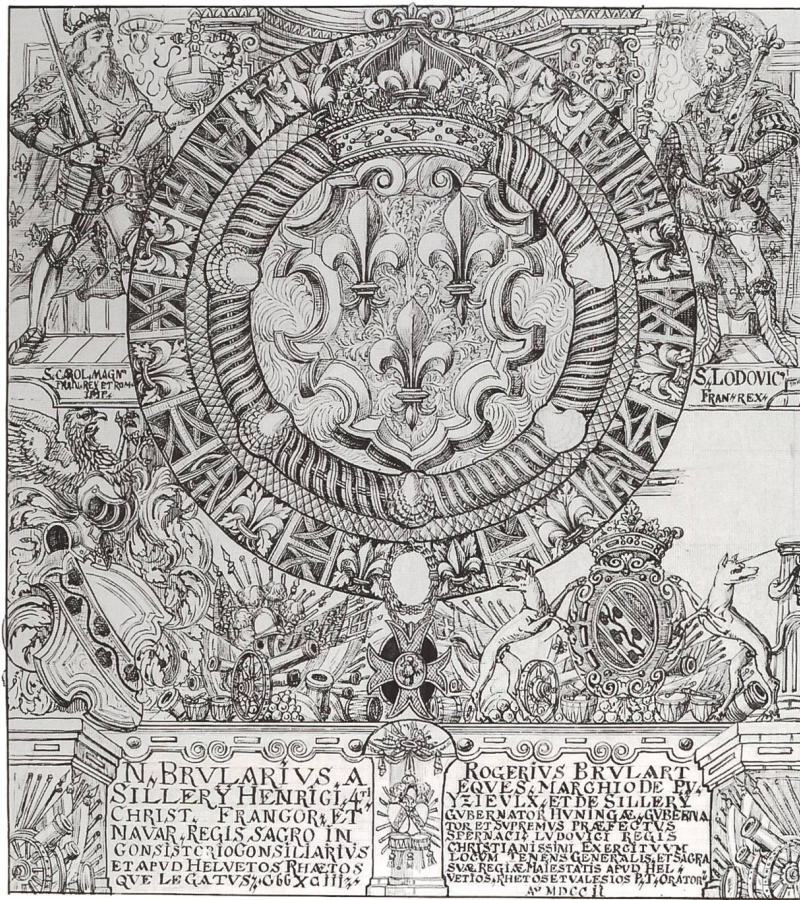 S. CAROL. MAGNꝰ
FRAN. REX ET ROM.
IMP.
S. LODOVICꝰ
FRAN. REX.
N. BRVLARIVS, A
SILLERY HENRIGI, 4TI
CHRIST. FRANGOR, ET
NAVAR, REGIS, SAGRO IN
GONSISTCRIO GONSILIARIVS
ET APVD HELVETOS RHÆTOS
QVE LEGATVS.
ROGERIVS BRVLART
EQVES, MARGHIO DE PV
YZIEVLX, ET DE SILLERY
GVBERNATOR HVNINGÆ, GVBERNA
TOR ET SVPREMVS PRÆFECTVS
SPERNACI LVDOVICI REGIS
CHRISTIANISSIMI, EXERCITVVM
LOCVM TENENS GENERALIS, ET SAGRA
SVÆ REGIÆ MAIESTATIS APVD HEL
VETIOS, RHETOS ET VALESIOS P,T, ORATOR
Aᵒ MDCCII